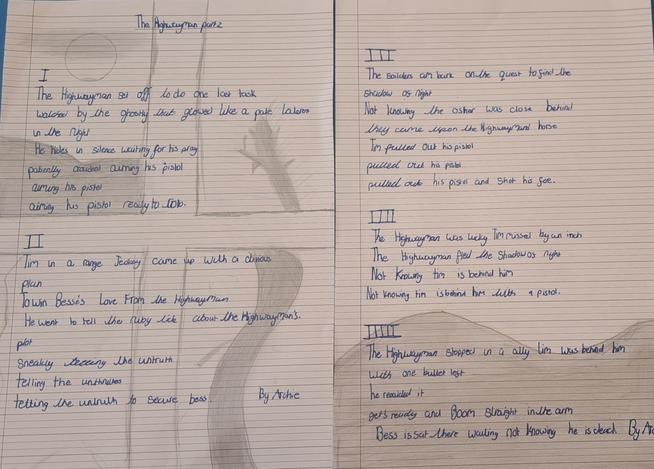 The Highwayman part 2
I
The Highwayman set off to do one last task
watched by the ghostly that glowed like a pale
in the night
He hides in silence waiting for his pray
patiently aiming his pistol
aiming his pistol
aiming his pistol ready to
II
Tim in a range Jealousy came up with a
plan
To win Bess's Love From the Highwayman
He went to tell the ruby about the Highwayman's
plot
Sneakily the untruth
telling the
telling the untruth to secure bess.
By Archie
III
The on the quest to find the
shadow as night
Not knowing the was close behind
they came upon the Highwaymans horse
Tim pulled out his pistol
pulled out his
pulled out his pistol and shot his foe.
IIII
The Highwayman was lucky Tim missed by an inch
The Highwayman fled the Shadow as night
Not Knowing tim is behind him
Not knowing tim is behind him with a pistol.
IIIII
The Highwayman stopped in a ally tim was behind him
with one bullet left
he it
gets ready and Boom straight in the arm
Bess is sat there waiting not knowing he is dead
By